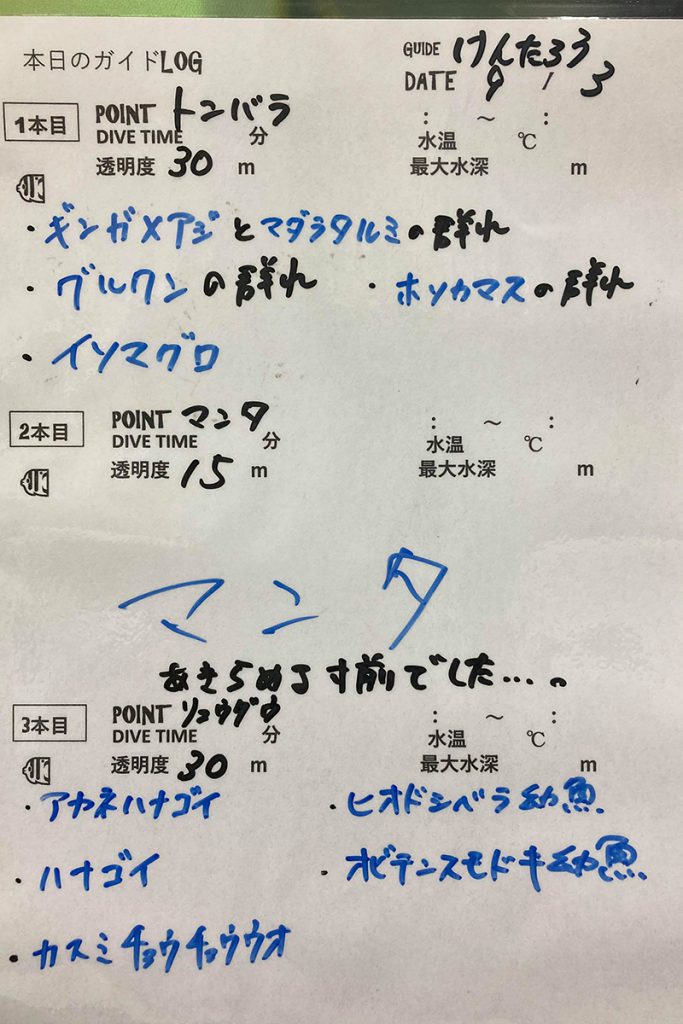 本日のガイドLOG
GUIDE けんたろう
DATE 9 / 3
1本目
POINT トンバラ
DIVE TIME 分
: ～ :
透明度 30 m
水温 ℃
最大水深 m
・ギンガメアジとマダラタルミの群れ
・グルクンの群れ ・ホソカマスの群れ
・イソマグロ
2本目
POINT マンタ
DIVE TIME 分
: ～ :
透明度 15 m
水温 ℃
最大水深 m
マンタ
あきらめる寸前でした…。
3本目
POINT リュウグウ
DIVE TIME 分
: ～ :
透明度 30 m
水温 ℃
最大水深 m
・アカネハナゴイ ・ヒオドシベラ幼魚
・ハナゴイ ・オビテンスモドキ幼魚
・カスミチョウチョウウオ